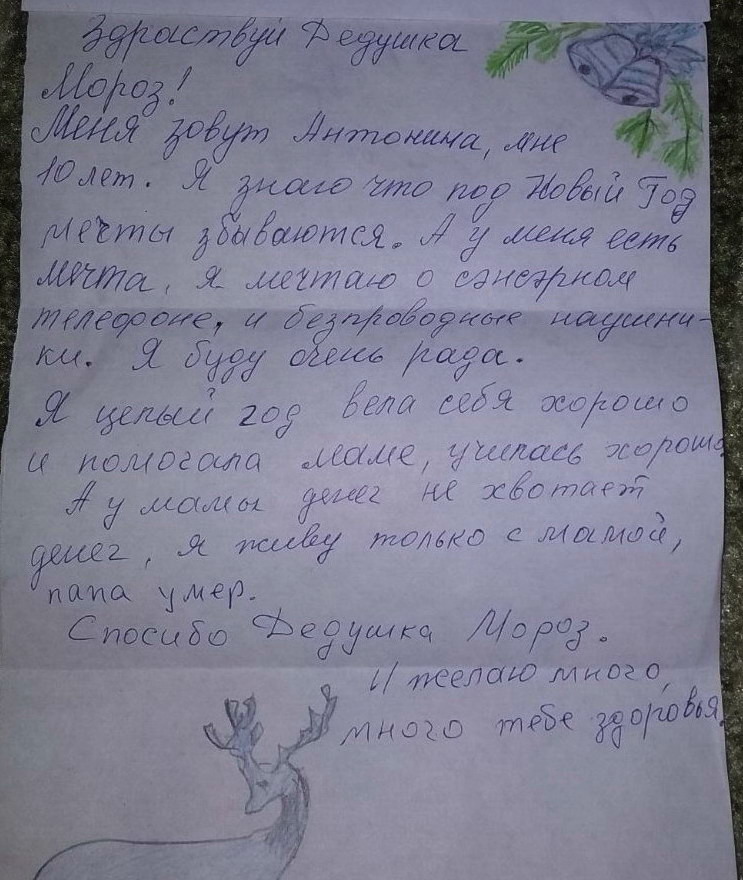 Здраствуй Дедушка
Мороз!
Меня зовут Антонина, мне
10 лет. Я знаю что под Новый Год
мечты збываются. А у меня есть
мечта, я мечтаю о сэнсэрном
телефоне, и безпроводные наушни-
ки. Я буду очень рада.
Я целый год вела себя хорошо
и помогала маме, училась хорошо.
А у мамы денег не хвотает
денег, я живу только с мамой,
папа умер.
Спосибо Дедушка Мороз.
И желаю много,
много тебе здоровья.